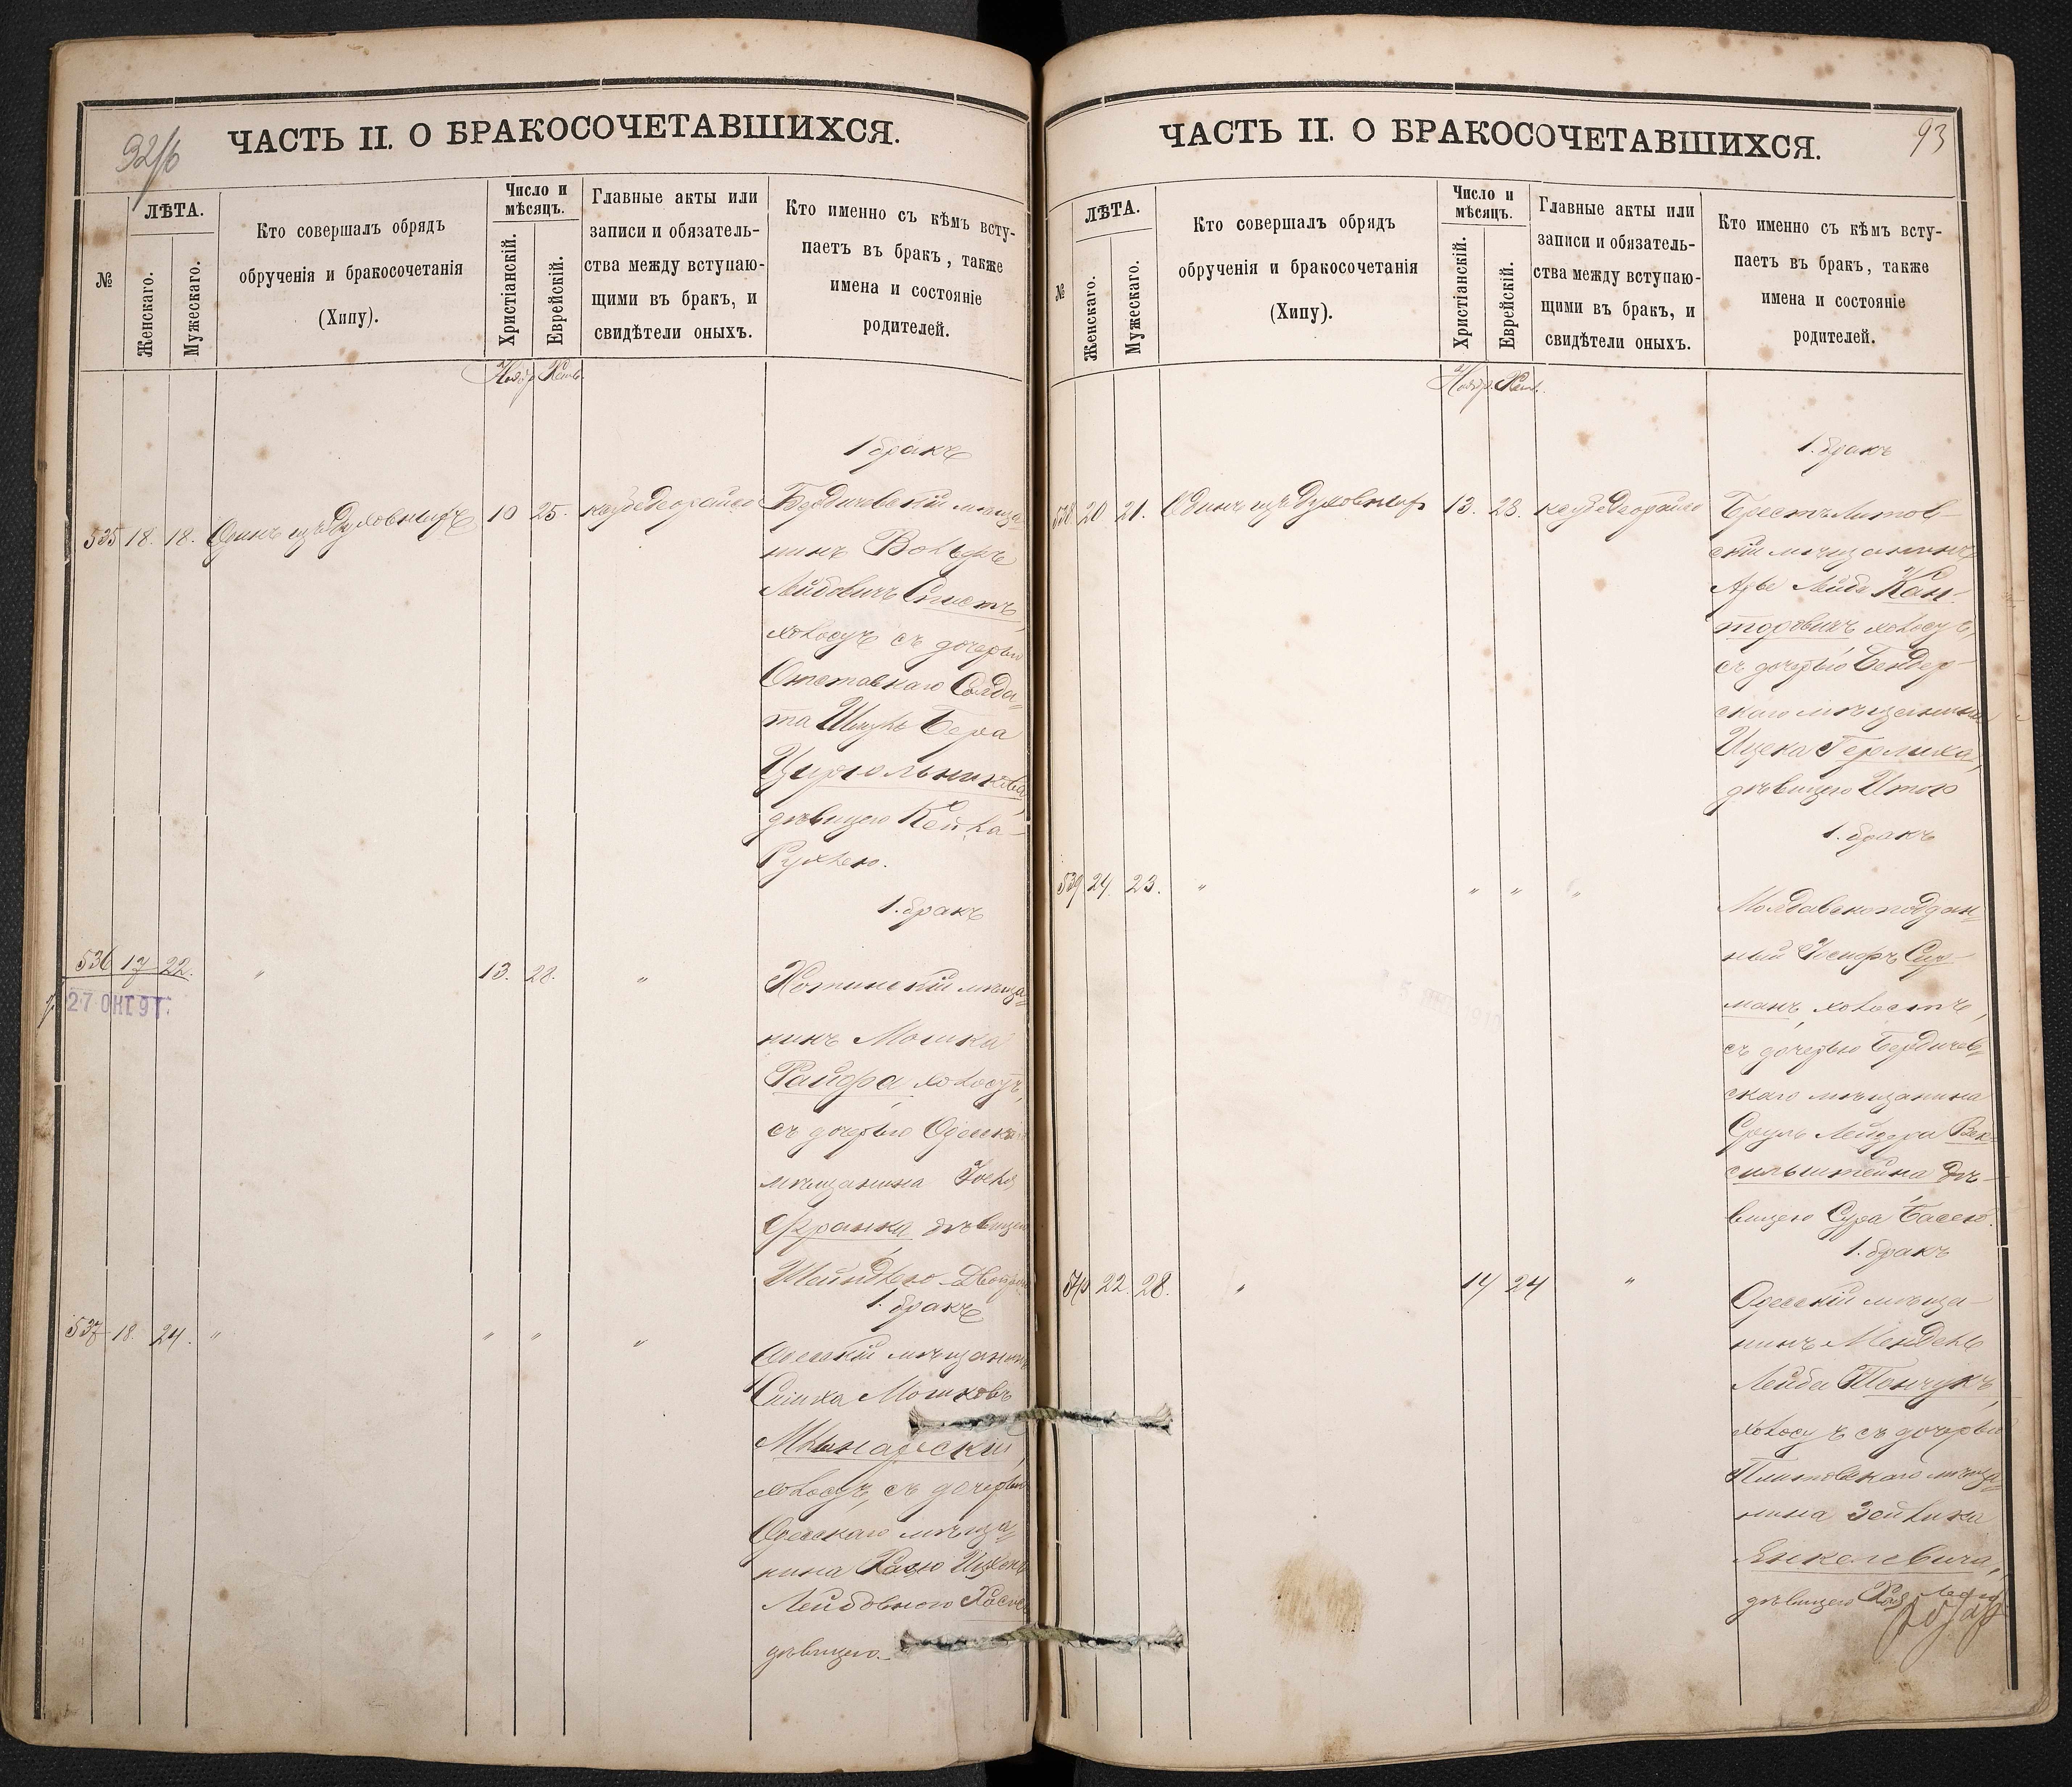 92/б
ЧАСТЬ II. О БРАКОСОЧЕТАВШИХСЯ.
№
ЛѢТА.
Женскаго.
Мужескаго.
Кто совершалъ обрядъ
обрученія и бракосочетанія
(Хипу).
Число и
мѣсяцъ.
Христіанскій.
Еврейскій.
Главные акты или
записи и обязатель-
ства между вступаю-
щими въ бракъ, и
свидѣтели оныхъ.
Кто именно съ кѣмъ всту-
паетъ въ бракъ, также
имена и состояніе
родителей.
Ноябр. Кисл.
1 бракъ
535 18. 18. Одинъ изъ Духовныхъ 10 25. Бердичевскій мѣща-
нинъ Вольфъ
Лейбовичъ
холостъ съ дочерью
Отставнаго Солда-
та Шмуль Бера
Цирюльникова
дѣвицею Бейла-
Рухлею.
1. бракъ
536 17 22. " 13. 28. " Хотинскій мѣща-
27 ОКТ 91
нинъ Мошка
Райфа холостъ,
съ дочерью Одесскаго
мѣщанина
Франка дѣвицею
Шейндлею
1. бракъ
537 18. 24. " " " " Одесскій мѣщанинъ
Мошковъ
Млынарскій,
холостъ, съ дочерью
Одесскаго мѣща-
нина
Лейбовною
дѣвицею.
93
ЧАСТЬ II. О БРАКОСОЧЕТАВШИХСЯ.
№
ЛѢТА.
Женскаго.
Мужескаго.
Кто совершалъ обрядъ
обрученія и бракосочетанія
(Хипу).
Число и
мѣсяцъ.
Христіанскій.
Еврейскій.
Главные акты или
записи и обязатель-
ства между вступаю-
щими въ бракъ, и
свидѣтели оныхъ.
Кто именно съ кѣмъ всту-
паетъ въ бракъ, также
имена и состояніе
родителей.
Ноябр. Кисл.
1. бракъ
538 20 21. Одинъ изъ Духовныхъ 13. 28. Брестъ Литов-
скій мѣщанинъ
Лейба Кан-
торовичъ холостъ,
съ дочерью Бендер-
скаго мѣщанина
Ицека Герлиха,
дѣвицею Итою
1. бракъ
539 24. 23. " " " " Молдавскоподдан-
ный Іосифъ
манъ, холостъ,
съ дочерью Бердичев-
скаго мѣщанина
Сруль Лейзера Век-
сильштейна дѣ-
вицею Сура Басею.
1. бракъ
540 22. 28. " 14 24 " Одесскій мѣща-
нинъ Мендель
Лейба
холостъ съ дочерью
мѣща-
нина Зейлика
Янкелевича,
дѣвицею